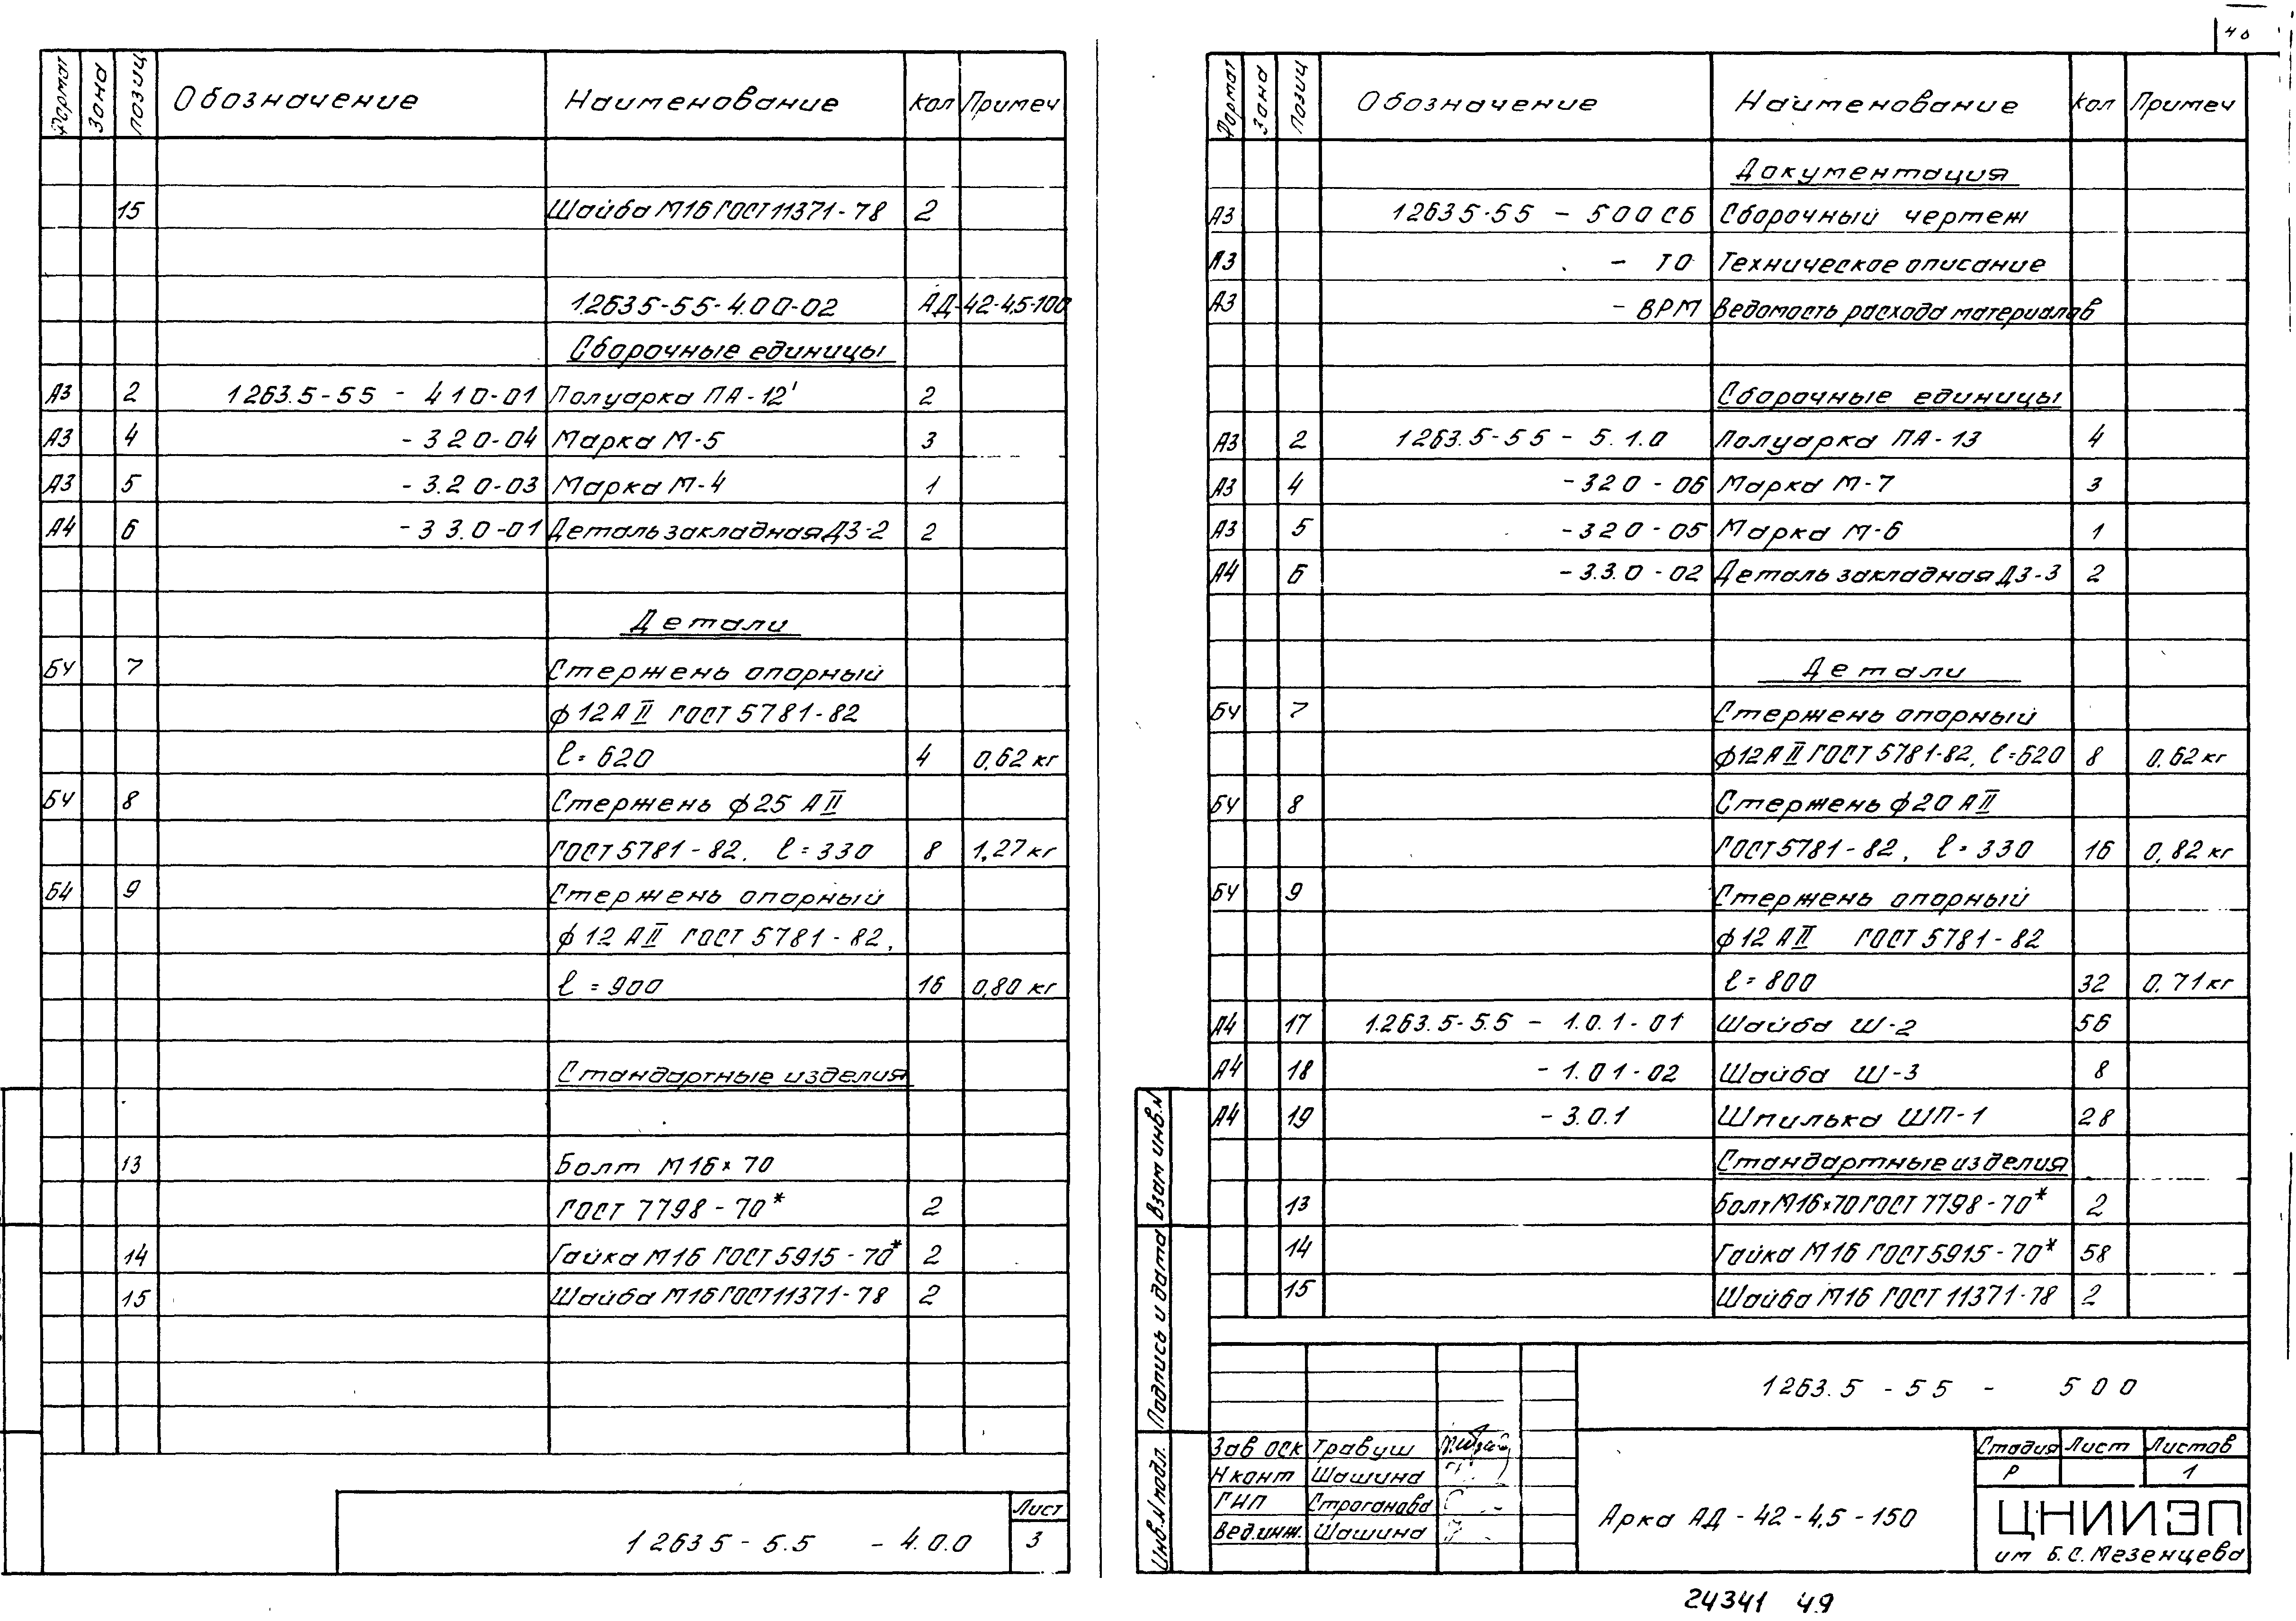 Формат Зона Позиц Обозначение Наименование Кол Примеч
15 Шайба М16 ГОСТ 11371-78 2
1.2635-55-4.00-02 АД-42-4,5-100
Сборочные единицы
А3 2 1263.5-55 - 410-01 Полуарка ПА-12' 2
А3 4 -320-04 Марка М-5 3
А3 5 -3.20-03 Марка М-4 1
А4 6 -33.0-01 Деталь закладная ДЗ-2 2
Детали
БЧ 7 Стержень опорный
ф12АII ГОСТ 5781-82
ℓ=620 4 0,62 кг
БЧ 8 Стержень ф25 АII
ГОСТ 5781-82. ℓ=330 8 1,27 кг
БЧ 9 Стержень опорный
ф12 АII ГОСТ 5781-82,
ℓ=900 16 0,80 кг
Стандартные изделия
13 Болт М16×70
ГОСТ 7798-70* 2
14 Гайка М16 ГОСТ 5915-70* 2
15 Шайба М16 ГОСТ 11371-78 2
12635-5.5 -4.0.0
Лист
3
Формат Зона Позиц Обозначение Наименование Кол Примеч
Документация
А3 12635-55 - 500СБ Сборочный чертеж
А3 - ТО Техническое описание
А3 - ВРМ Ведомость расхода материалов
Сборочные единицы
А3 2 1263.5-55 - 5.1.0 Полуарка ПА-13 4
А3 4 -320-06 Марка М-7 3
А3 5 -320-05 Марка М-6 1
А4 6 -3.3.0-02 Деталь закладная ДЗ-3 2
Детали
БЧ 7 Стержень опорный
ф12АII ГОСТ 5781-82, ℓ=620 8 0,62 кг
БЧ 8 Стержень ф20 АII
ГОСТ 5781-82, ℓ=330 16 0,82 кг
БЧ 9 Стержень опорный
ф12 АII ГОСТ 5781-82
ℓ=800 32 0,71 кг
А4 17 1.263.5-5.5 - 1.0.1-01 Шайба Ш-2 56
А4 18 -1.01-02 Шайба Ш-3 8
А4 19 -3.0.1 Шпилька ШП-1 28
Стандартные изделия
13 Болт М16×70 ГОСТ 7798-70* 2
14 Гайка М16 ГОСТ 5915-70* 58
15 Шайба М16 ГОСТ 11371-78 2
Взам инв.N
Подпись и дата
Инв.N подл.
1263.5 - 55 - 500
Зав ОСК Травуш
Н конт Шашина
ГИП Строганова
Вед.инж. Шашина
Арка АД-42-4,5-150
Стадия Лист Листов
Р 1
ЦНИИЭП
им Б.С.Мезенцева
24341 49